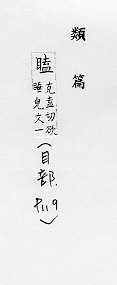 類篇
瞌 克盍切欲
睡皃文一
(目部.
P119)